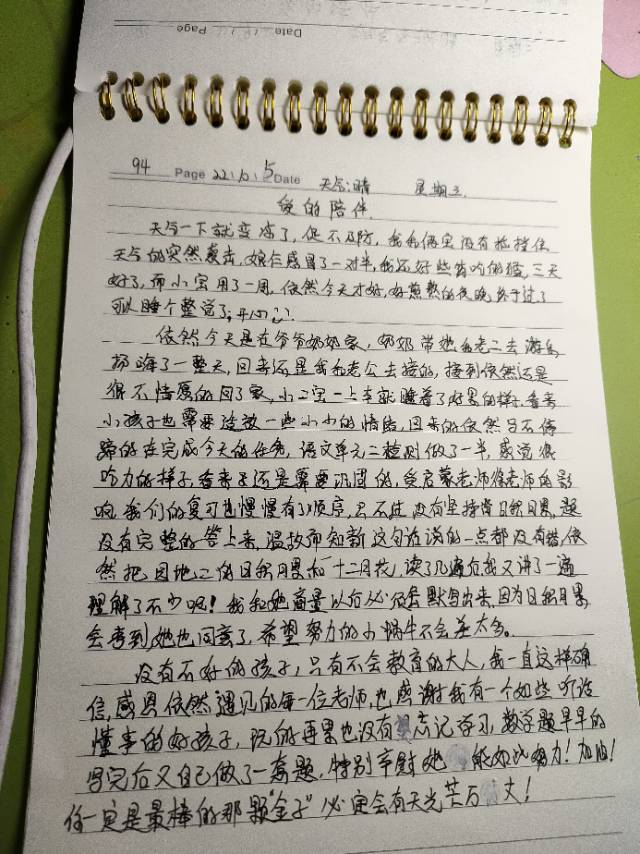 Date
Page
94 Page 22.10.5 Date 天气:晴 星期三
爱的陪伴
天气一下就变冷了,促不及防,我和俩宝没有抵挡住
天气的突然袭击,娘仨感冒了一对半,我还好些,三天
好了,而小宝用了一周,依然今天才好,好煎熬的夜晚终于过了
可以睡个整觉了;开心
依然今天是在爷爷奶奶家,奶奶带她和老二去游乐
场嗨了一整天,回来还是我和老公去接的,接到依然还是
很不情愿的回了家,小二宝一上车就睡着了好累的样子,看来
小孩子也需要适放一些小小的情绪,回来的依然马不停
蹄的在完成今天的任务,语文单元二检测做了一半,感觉很
吃力的样子,看来了还是需要巩固的,受启蒙老师徐老师的影
响,我们的复习也慢慢有了顺序,只不过没有坚持背日积月累,题
没有完整的答上来,温故而知新这句话说的一点都没有错,依
然把园地二的日积月累和十二月花,读了几遍后我又讲了一遍
理解了不少呢!我和她商量以后必须会默写出来,因为日积月累
会考到,她也同意了,希望努力的小蜗牛不会差太多。
没有不好的孩子,只有不会教育的大人,我一直这样确
信,感恩依然遇见的每一位老师,也感谢我有一个如此听话
懂事的好孩子,玩的再累也没有忘记学习,数学题早早的
写完后又自己做了一套题,特别幸慰她能如此努力!加油!
你一定是最棒的那颗“金子”必定会有光芒万丈!